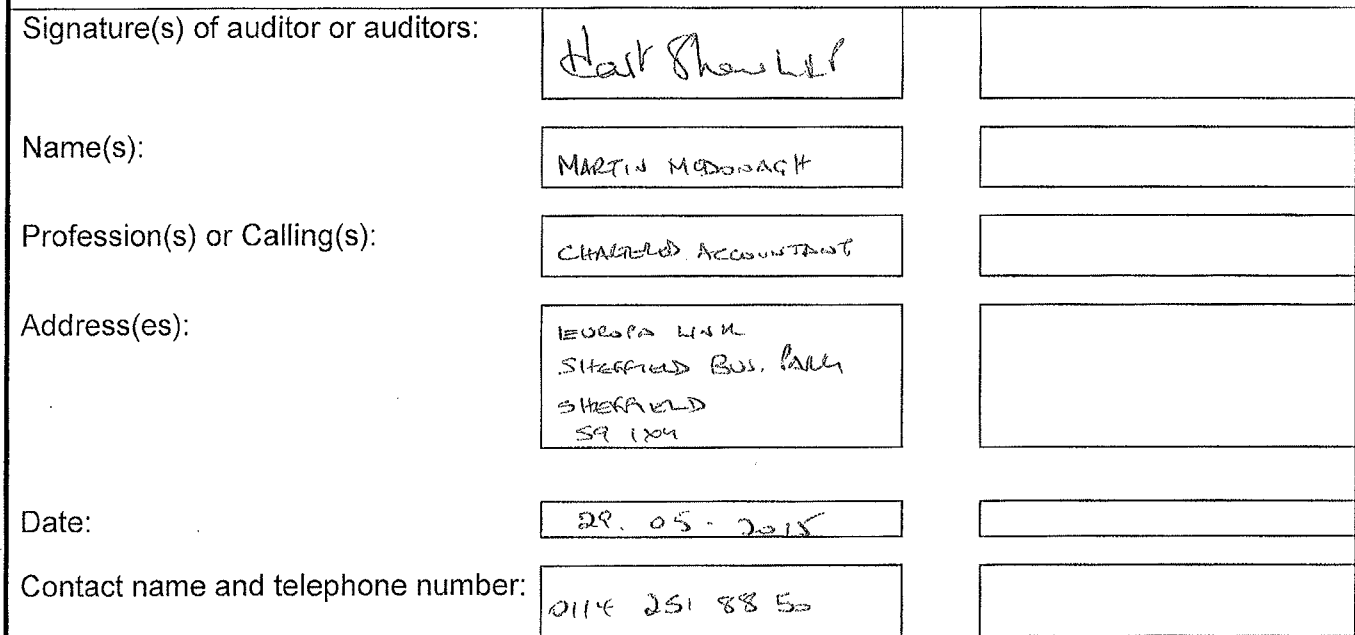 Signature(s) of auditor or auditors:
Hart Shaw LLP
Name(s):
MARTIN MCDONAGH
Profession(s) or Calling(s):
CHARTERED ACCOUNTANT
Address(es):
EUROPA LINK
SHEFFIELD BUS. PARK
SHEFFIELD
S9 1XU
Date:
29. 05 - 2015
Contact name and telephone number:
0114 251 88 50